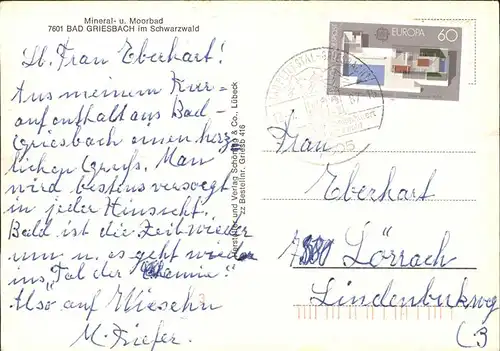 Mineral- u. Moorbad
7601 BAD GRIESBACH im Schwarzwald
Lb. Frau Eberhart!
Aus meinem Kur=
aufenthalt aus Bad-
Griesbach einen herz
lichen Gruß. Man
wird bestens versorgt
in jeder Hinsicht.
Bald ist die Zeit wieder
um u. es geht wieder
ins "Tal der Chemie".
Also auf Wiesehn
M. Kiefer.
Hersteller und Verlag Schöning & Co., Lübeck
zz Bestellnr. Griesb 416
EUROPA 60
Frau
Eberhart
Lörrach
Lindenbukweg